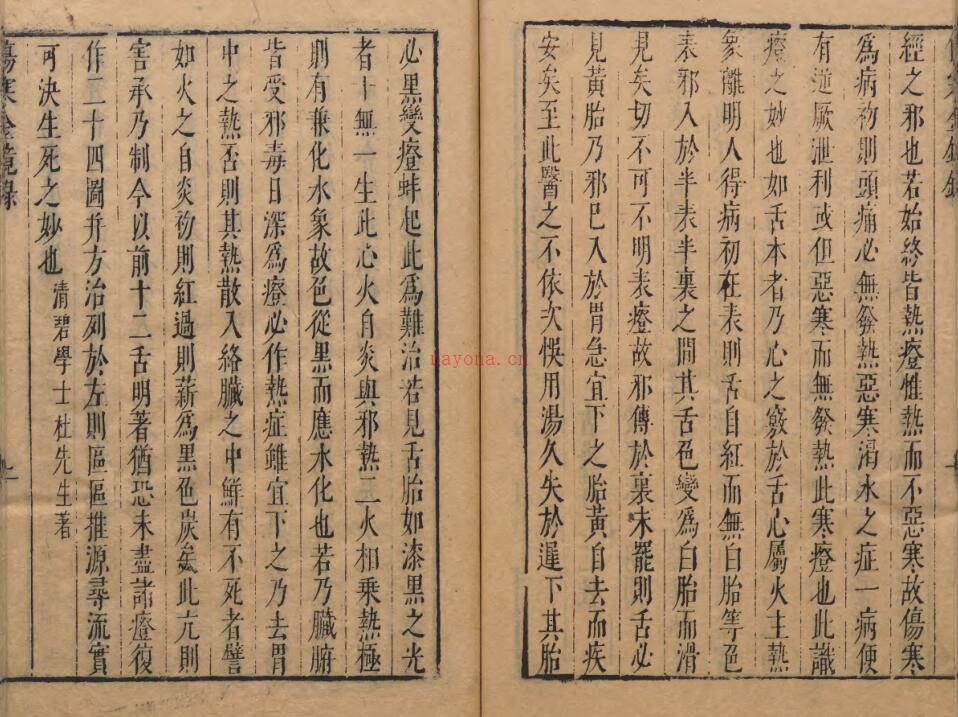 經之邪也若始終皆熱癥惟熱而不惡寒故傷寒
為病初則頭痛必無發熱惡寒渴水之症一病便
有逆厥泄利或但惡寒而無發熱此寒癥也此識
癥之妙也如舌本者乃心之竅於舌心屬火主熱
象離明人得病初在表則舌自紅而無白胎等色
表邪入於半表半裏之間其舌色變為白胎而滑
見矣切不可不明表癥故邪傳於裏未罷則舌必
見黃胎乃邪已入於胃急宜下之胎黃自去而疾
安矣至此醫之不依次悞用湯久失於遲下其胎
必黑變癥蚌起此為難治若見舌胎如漆黑之光
者十無一生此心火自炎與邪熱二火相乘熱極
則有兼化水象故色從黑而應水化也若乃臟腑
皆受邪毒日深為癥必作熱症雖宜下之乃去胃
中之熱否則其熱散入絡臟之中鮮有不死者譬
如火之自炎初則紅過則薪為黑色炭矣此亢則
害承乃制今以前十二舌明著猶恐未盡諸癥復
作二十四圖并方治列於左則區區推源尋流實
可決生死之妙也 清碧學士杜先生著
傷寒金鏡錄
nayona.cn